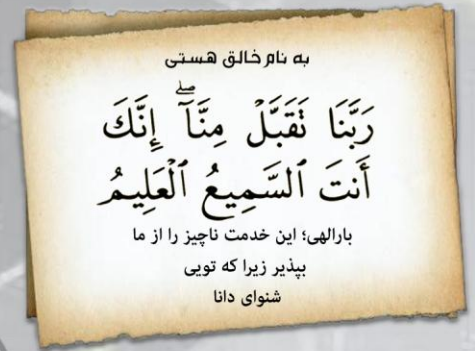 به نام خالق هستی
رَبَّنَا تَقَبَّلۡ مِنَّآۖ إِنَّكَ
أَنتَ ٱلسَّمِيعُ ٱلۡعَلِيمُ
بارالهی؛ این خدمت ناچیز را از ما
بپذیر زیرا که تویی
شنوای دانا